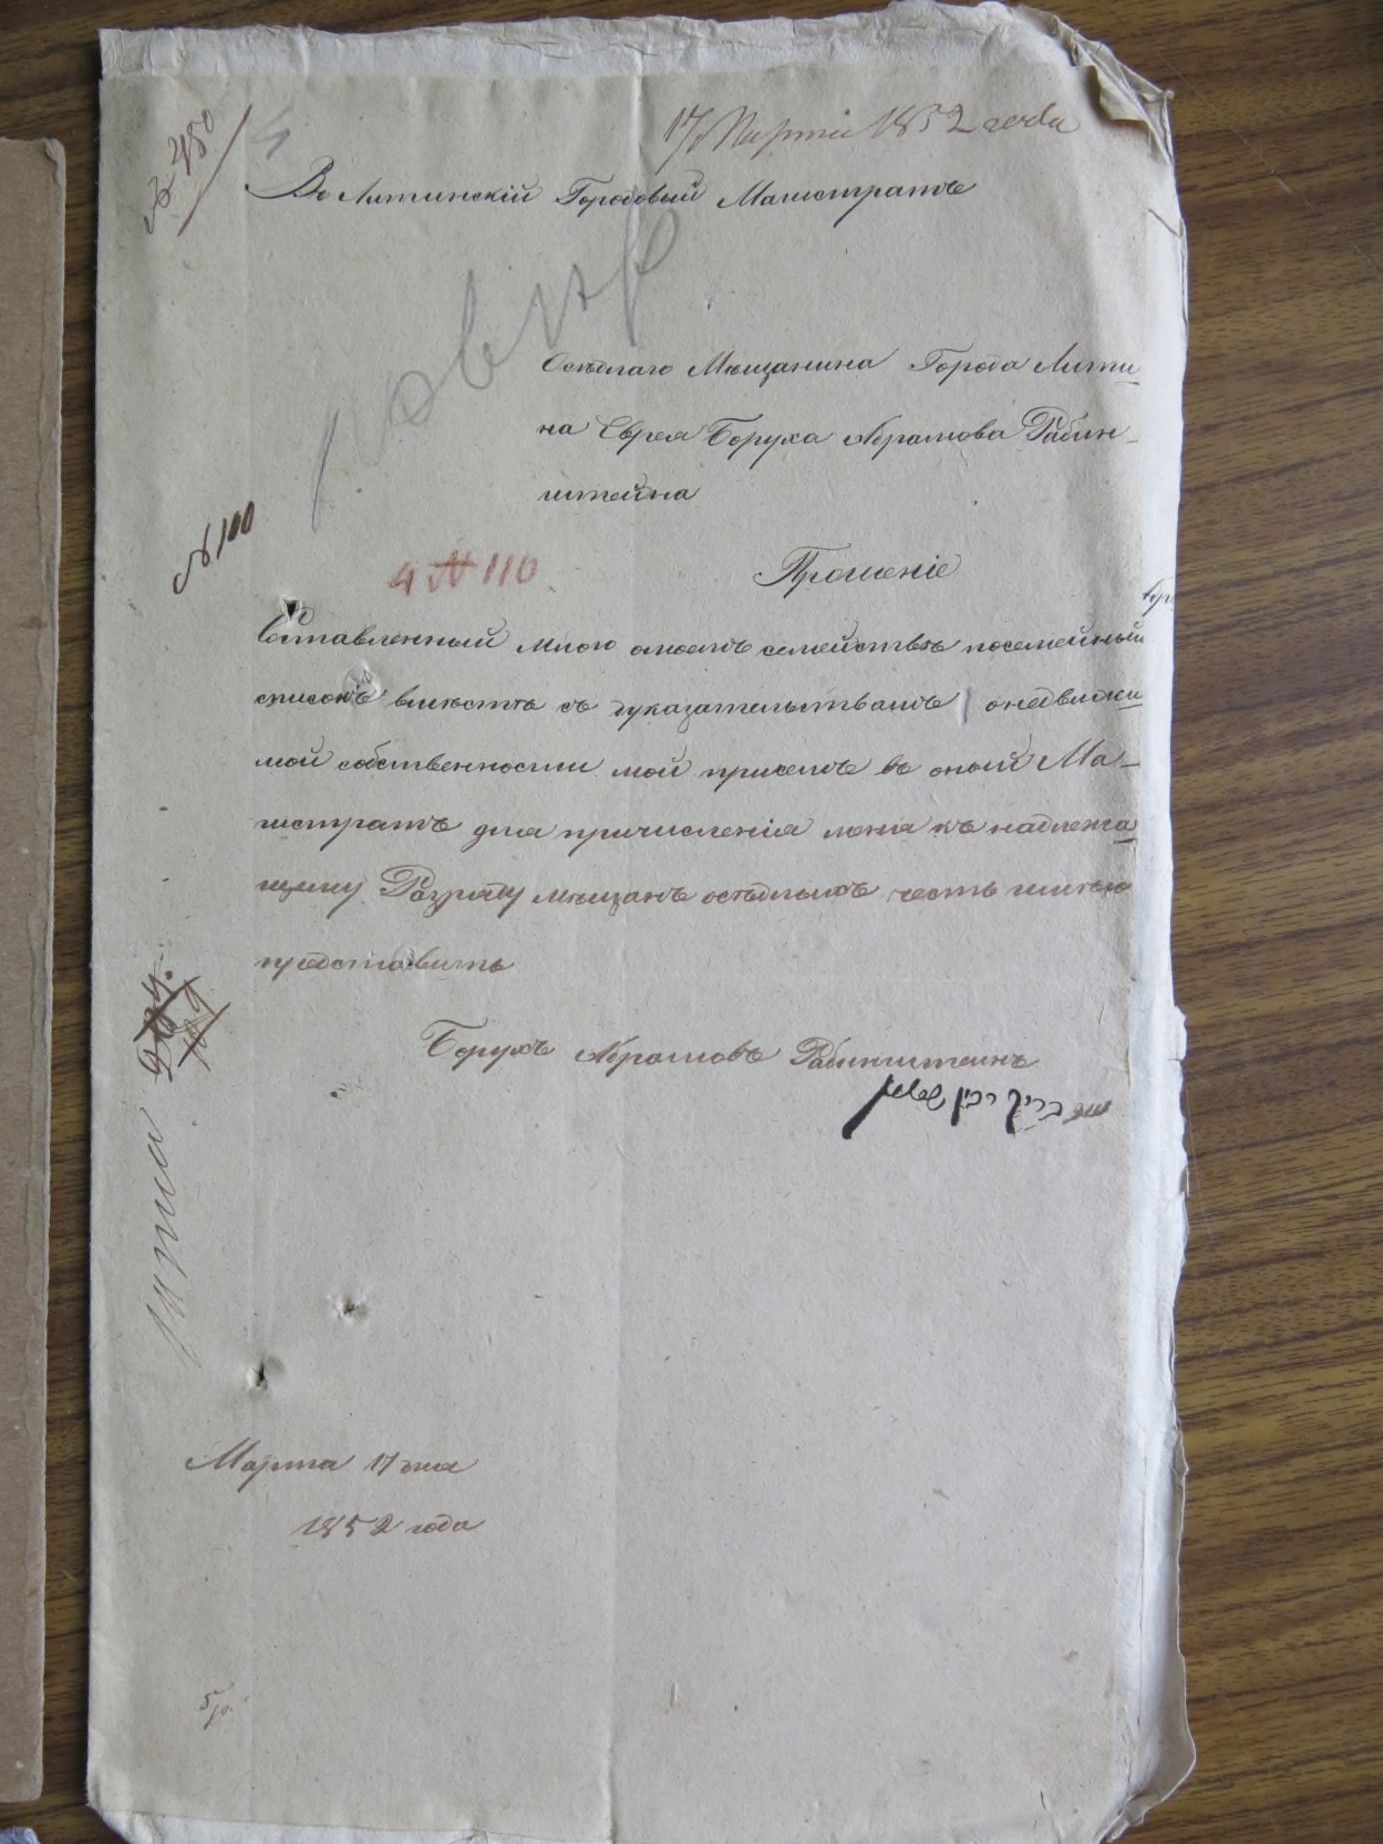 № 2450
17 Марта 1852 года
Въ Литинскій Городовый Магистратъ
Осѣдлаго Мѣщанина Города Лити-
на Еврея Боруха Абрамова Рабин-
штейна
№ 100
4 № 110
Прошеніе
Составленный мною омоемъ семействѣ посемейный
списокъ вмѣстѣ съ доказательствамъ онедвижи-
мой собственности мой присемъ въ оный Ма-
гистратъ для причисленія меня къ надлежа-
щему Разряду Мѣщанъ осѣдлыхъ честь имѣю
представить
Борухъ Абрамовъ Рабинштейнъ
Марта 17 дня
1852 года